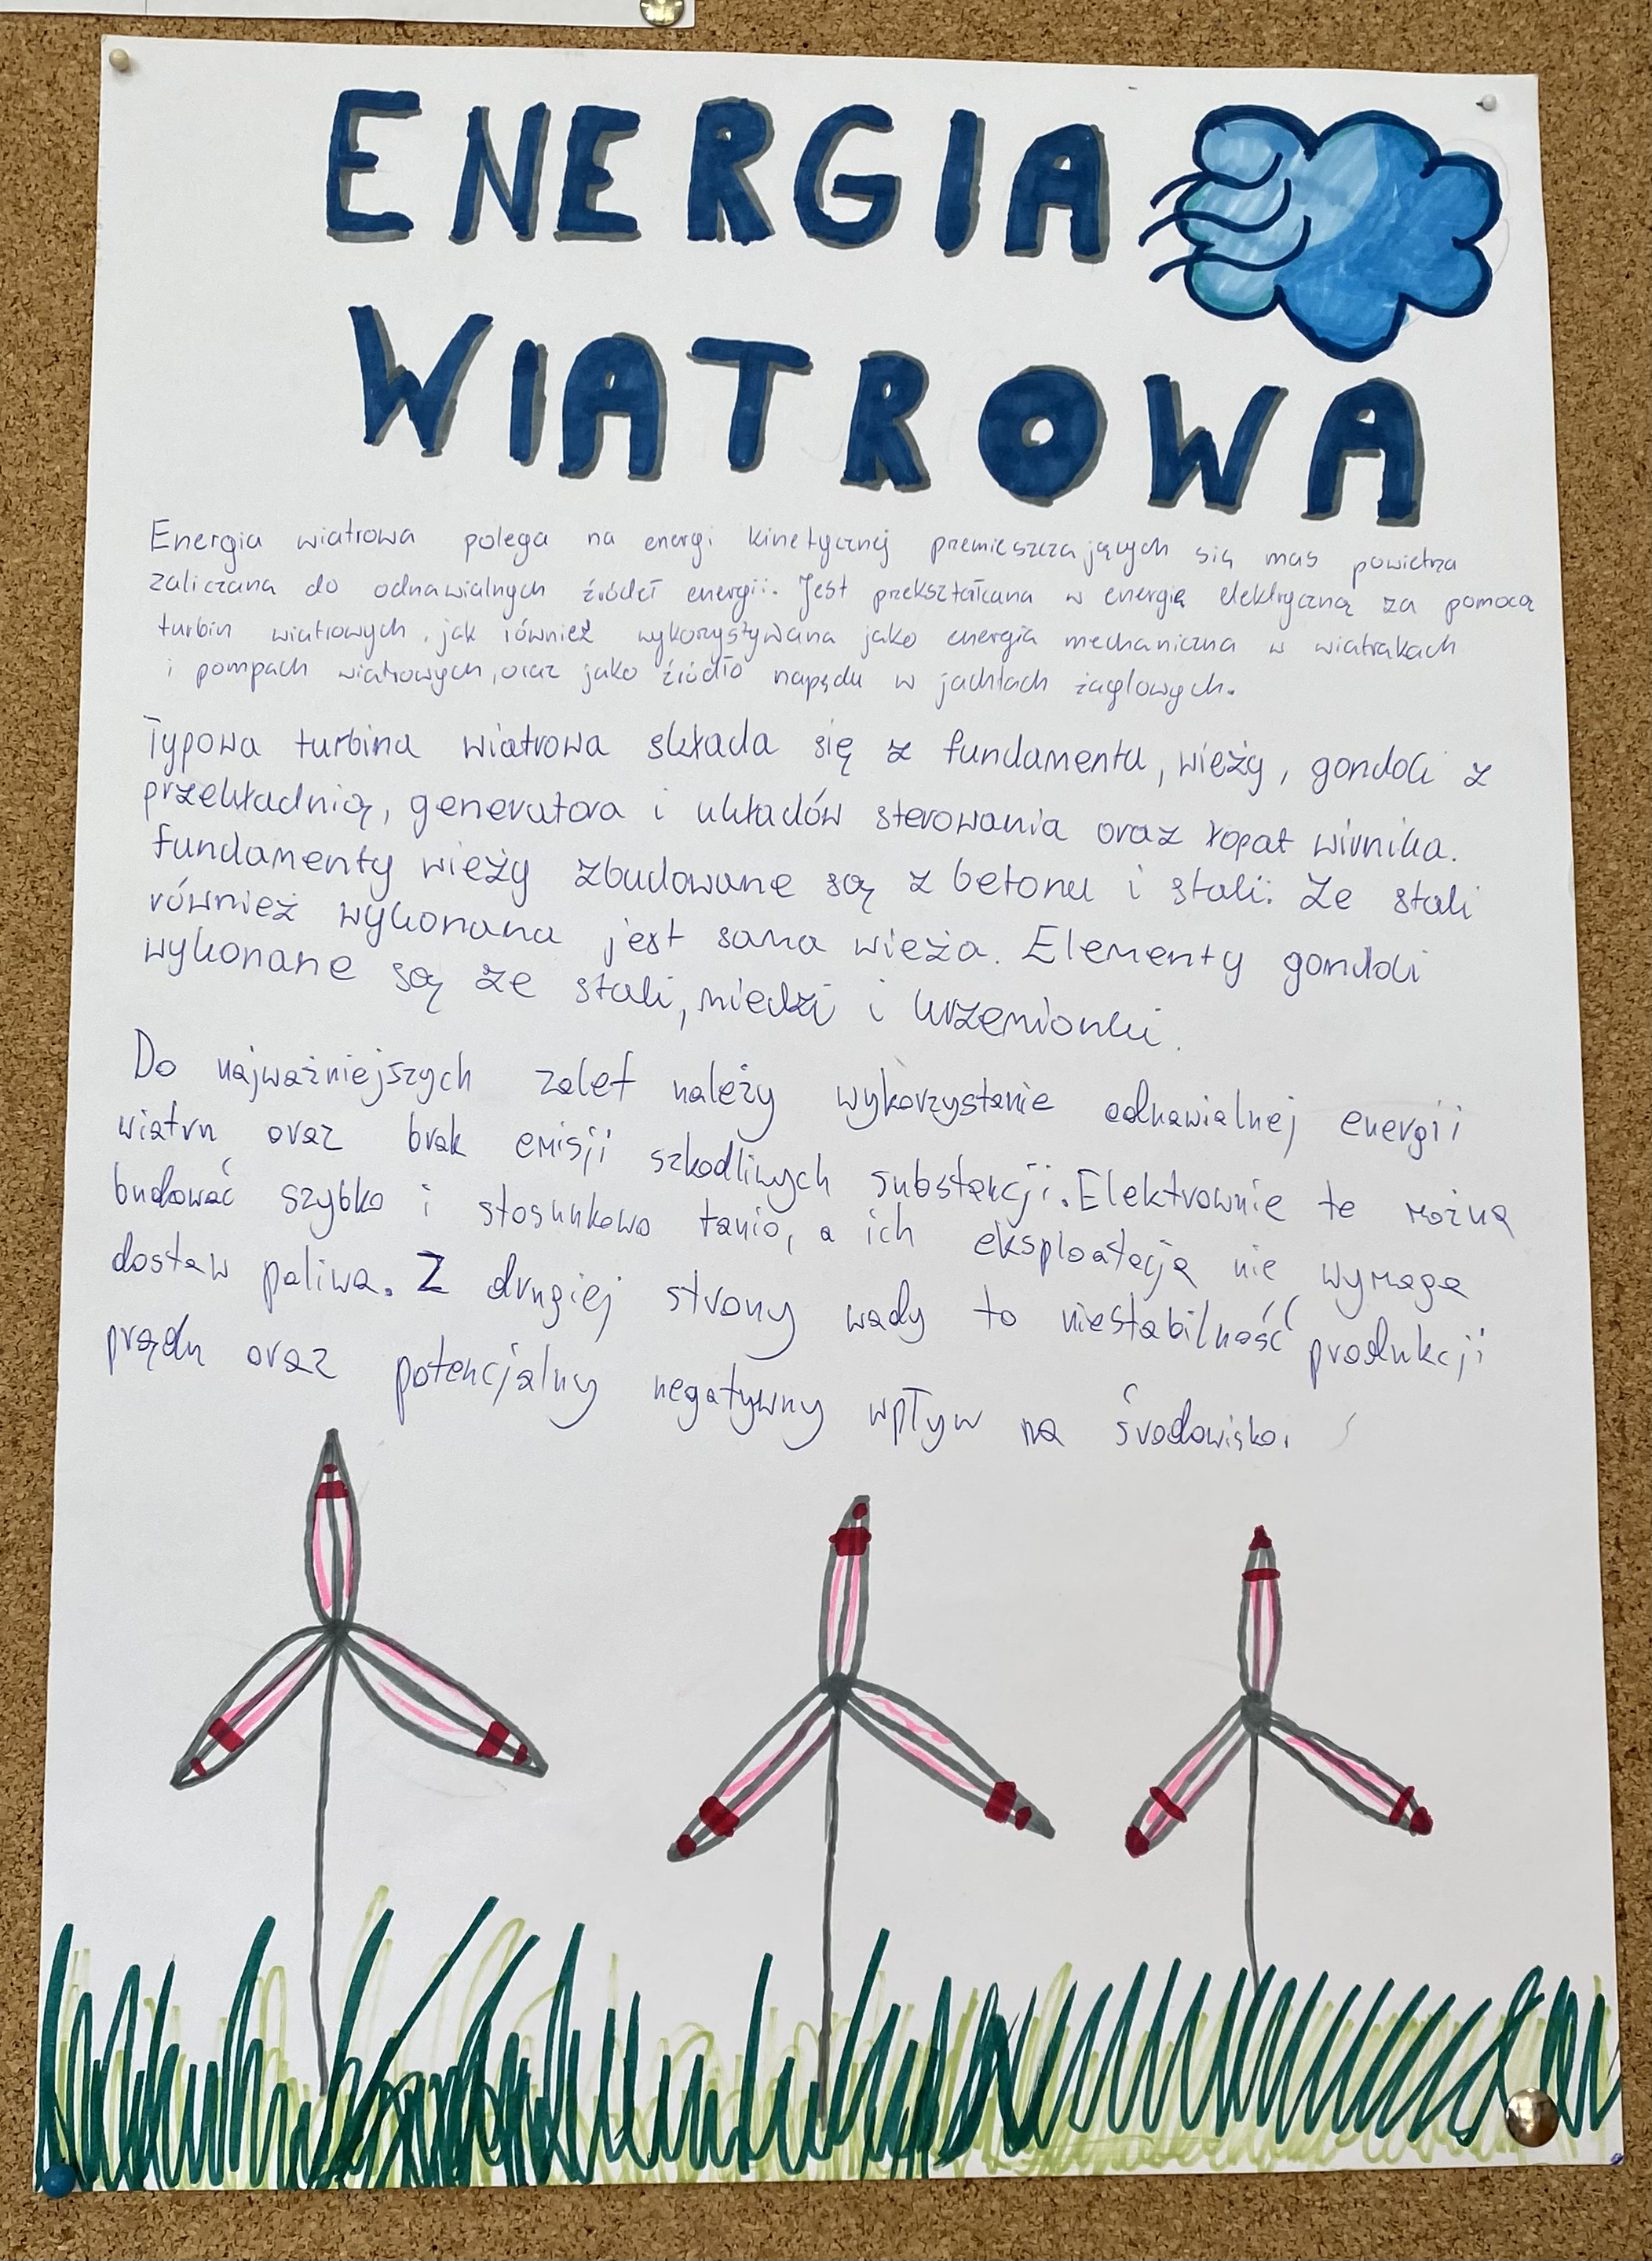 ENERGIA
WIATROWA
Energia wiatrowa polega na energi kinetycznej przemieszczających się mas powietrza
zaliczana do odnawialnych źródeł energii. Jest przekształcana w energię elektryczną za pomocą
turbin wiatrowych, jak również wykorzystywana jako energia mechaniczna w wiatrakach
i pompach wiatrowych, oraz jako źródło napędu w jachtach żaglowych.
Typowa turbina wiatrowa składa się z fundamentu, wieży, gondoli z
przekładnią, generatora i układów sterowania oraz łopat wirnika.
Fundamenty wieży zbudowane są z betonu i stali. Ze stali
również wykonana jest sama wieża. Elementy gondoli
wykonane są ze stali, miedzi i krzemionki.
Do najważniejszych zalet należy wykorzystanie odnawialnej energii
wiatru oraz brak emisji szkodliwych substancji. Elektrownie te można
budować szybko i stosunkowo tanio, a ich eksploatacja nie wymaga
dostaw paliwa. Z drugiej strony wady to niestabilność produkcji
prądu oraz potencjalny negatywny wpływ na środowisko.